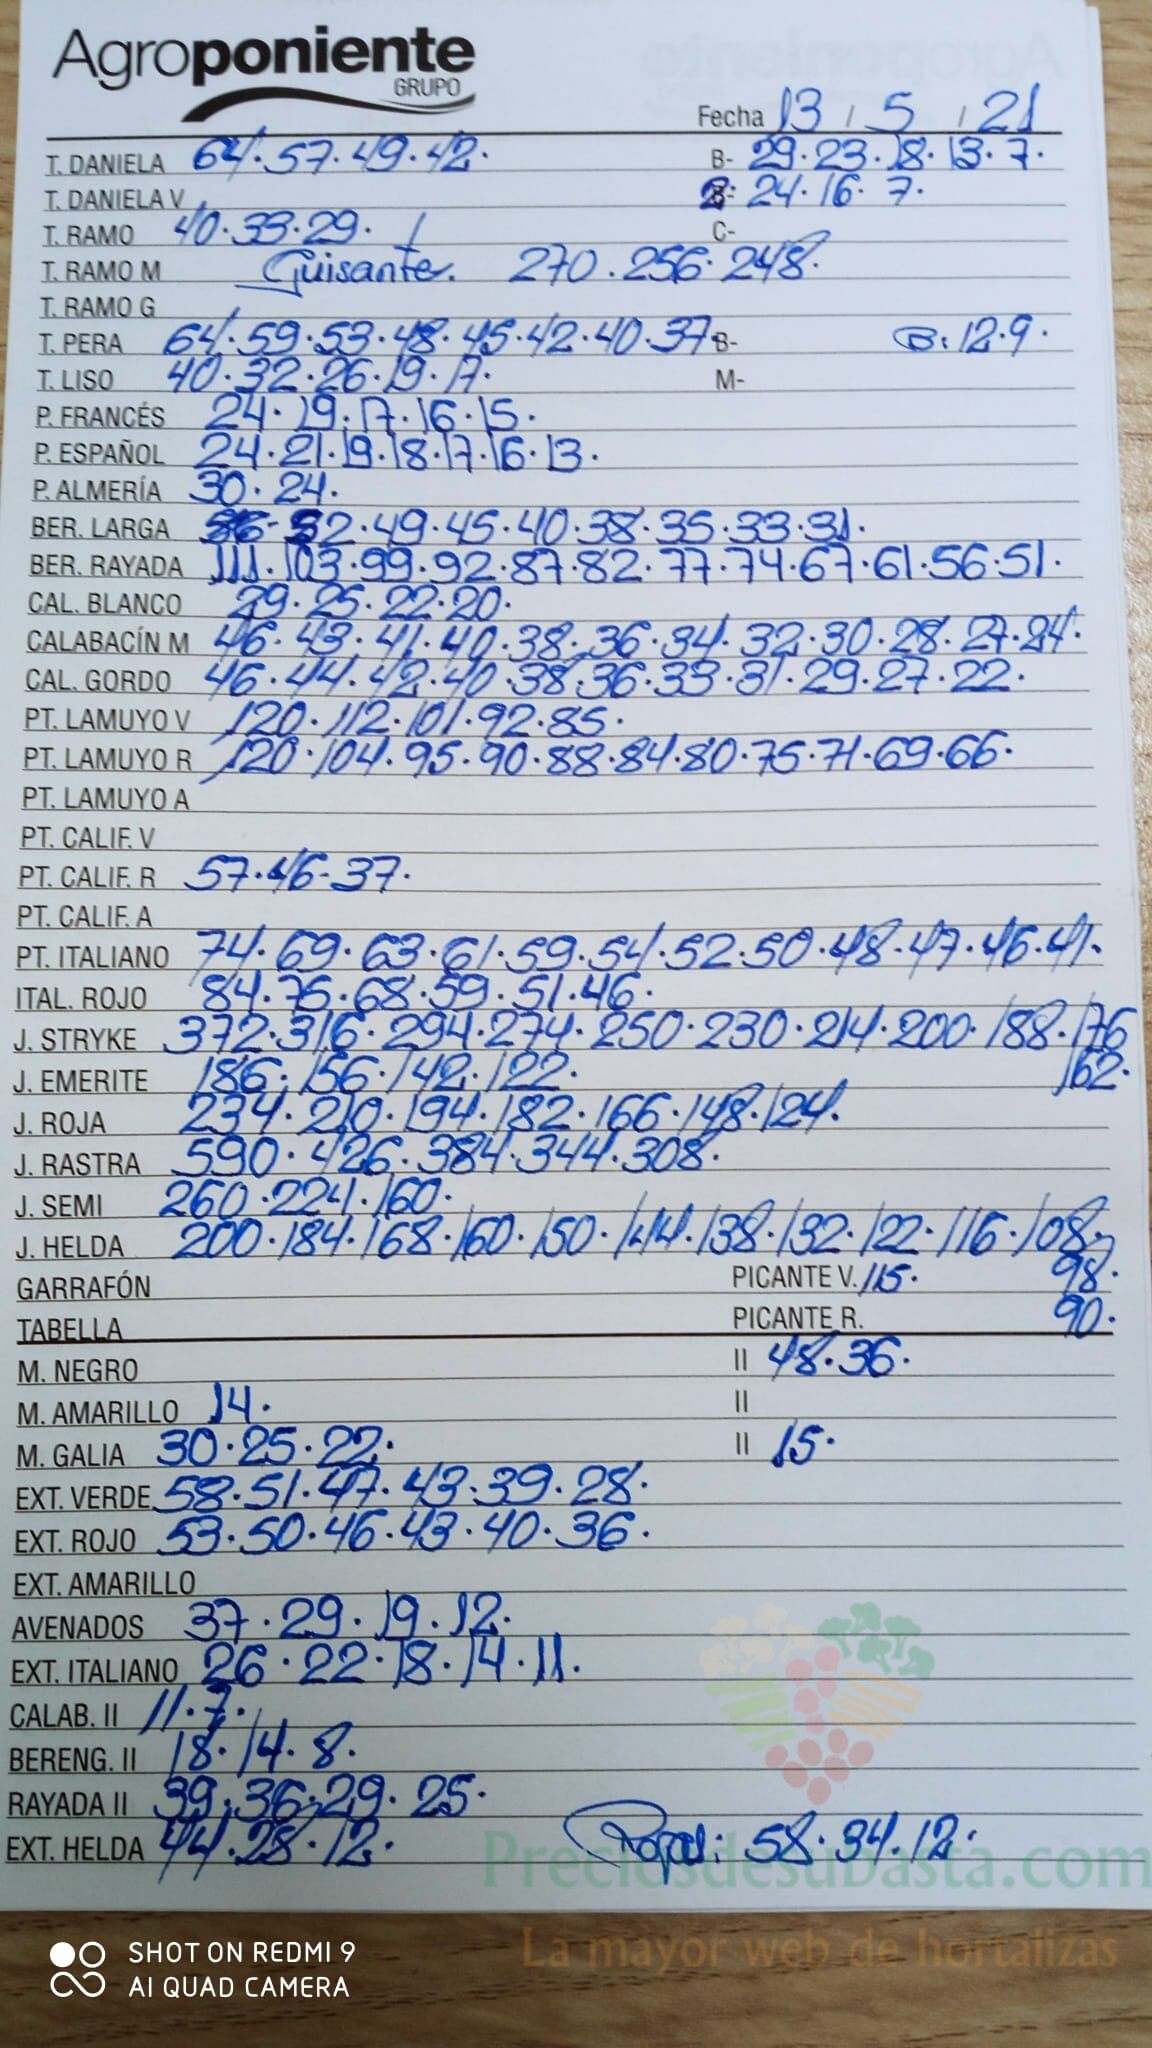 Agroponiente
GRUPO
Fecha 13 / 5 / 21
T. DANIELA 64.57.49.42. B- 29.23.18.13.7.
T. DANIELA V 24.16.7.
T. RAMO 40.33.29. C-
T. RAMO M Guisante. 270.256.248.
T. RAMO G
T. PERA 64.59.53.48.45.42.40.37. B- B: 12.9.
T. LISO 40.32.26.19.17. M-
P. FRANCÉS 24.19.17.16.15.
P. ESPAÑOL 24.21.19.18.17.16.13.
P. ALMERÍA 30.24.
BER. LARGA 52.49.45.40.38.35.33.31.
BER. RAYADA 111.103.99.92.87.82.77.74.67.61.56.51.
CAL. BLANCO 29.25.22.20.
CALABACÍN M 46.43.41.40.38.36.34.32.30.28.27.24.
CAL. GORDO 46.44.42.40.38.36.33.31.29.27.22.
PT. LAMUYO V 120.112.101.92.85.
PT. LAMUYO R 120.104.95.90.88.84.80.75.71.69.66.
PT. LAMUYO A
PT. CALIF. V
PT. CALIF. R 57.46-37.
PT. CALIF. A
PT. ITALIANO 74.69.63.61.59.54.52.50.48.47.46.41.
ITAL. ROJO 84.75.68.59.51.46.
J. STRYKE 372.316.294.274.250.230.214.200.188.176
J. EMERITE 186.156.142.122. 162.
J. ROJA 234.210.194.182.166.148.124.
J. RASTRA 590.426.384.344.308.
J. SEMI 260.224.160.
J. HELDA 200.184.168.160.150.144.138.132.122.116.108.
GARRAFÓN PICANTE V. 115. 98.
TABELLA PICANTE R. 90.
M. NEGRO II 48.36.
M. AMARILLO 14. II
M. GALIA 30.25.22. II 15.
EXT. VERDE 58.51.47.43.39.28.
EXT. ROJO 53.50.46.43.40.36.
EXT. AMARILLO
AVENADOS 37.29.19.12.
EXT. ITALIANO 26.22.18.14.11.
CALAB. II 11.7.
BERENG. II 18.14.8.
RAYADA II 39.36.29.25.
EXT. HELDA 44.28.12. : 58.34.12.
Preciosdesubasta.com
La mayor web de hortalizas
SHOT ON REDMI 9
AI QUAD CAMERA